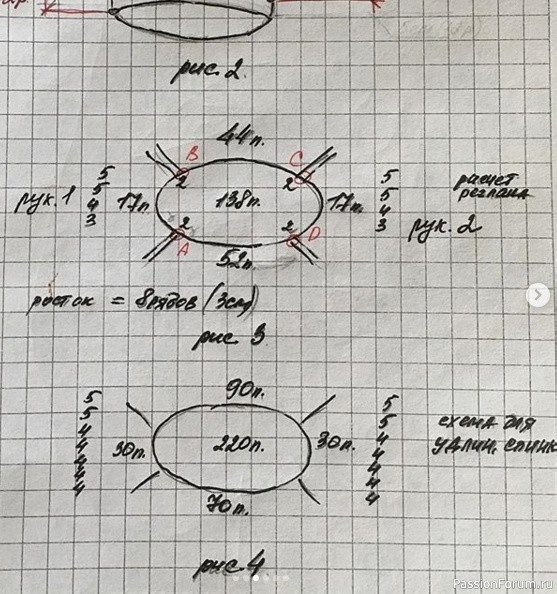 рис. 2
44п.
B
C
2
2
5
5
4
3
рук. 1
17п.
138п.
17п.
5
5
4
3
расчет
реглана
рук. 2
2
2
A
D
52п.
росток = 8рядов (3см)
рис 3
90п.
5
5
4
4
4
4
4
30п.
220п.
30п.
5
5
4
4
4
4
4
схема для
удлин. спинк
70п.
рис 4
PassionForum.ru